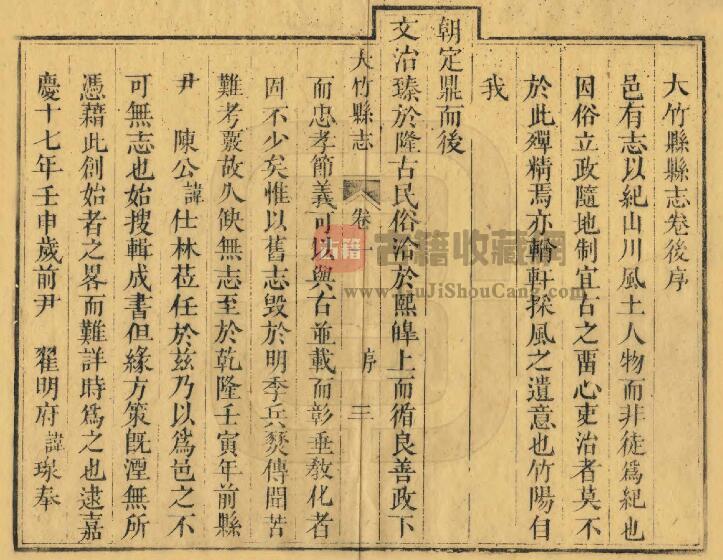 大竹縣縣志卷後序
邑有志以紀山川風土人物而非徒爲紀也
因俗立政隨地制宜古之畱心吏治者莫不
於此殫精焉亦輶軒採風之遺意也竹陽自
我
朝定鼎而後
文治臻於隆古民俗洽於熙皡上而循良善政下
大竹縣志 卷一 序 三
而忠孝節義可以與古並載而彰垂敎化者
固不少矣惟以舊志毀於明季兵燹傳聞苦
難考覈故久缺無志至於乾隆壬寅年前縣
尹 陳公諱仕林莅任於兹乃以爲邑之不
可無志也始搜輯成書但緣方策旣湮無所
憑藉此創始者之畧而難詳時爲之也逮嘉
慶十七年壬申歲前尹 翟明府諱琭奉
古籍 古籍收藏網
www.GuJiShouCang.com